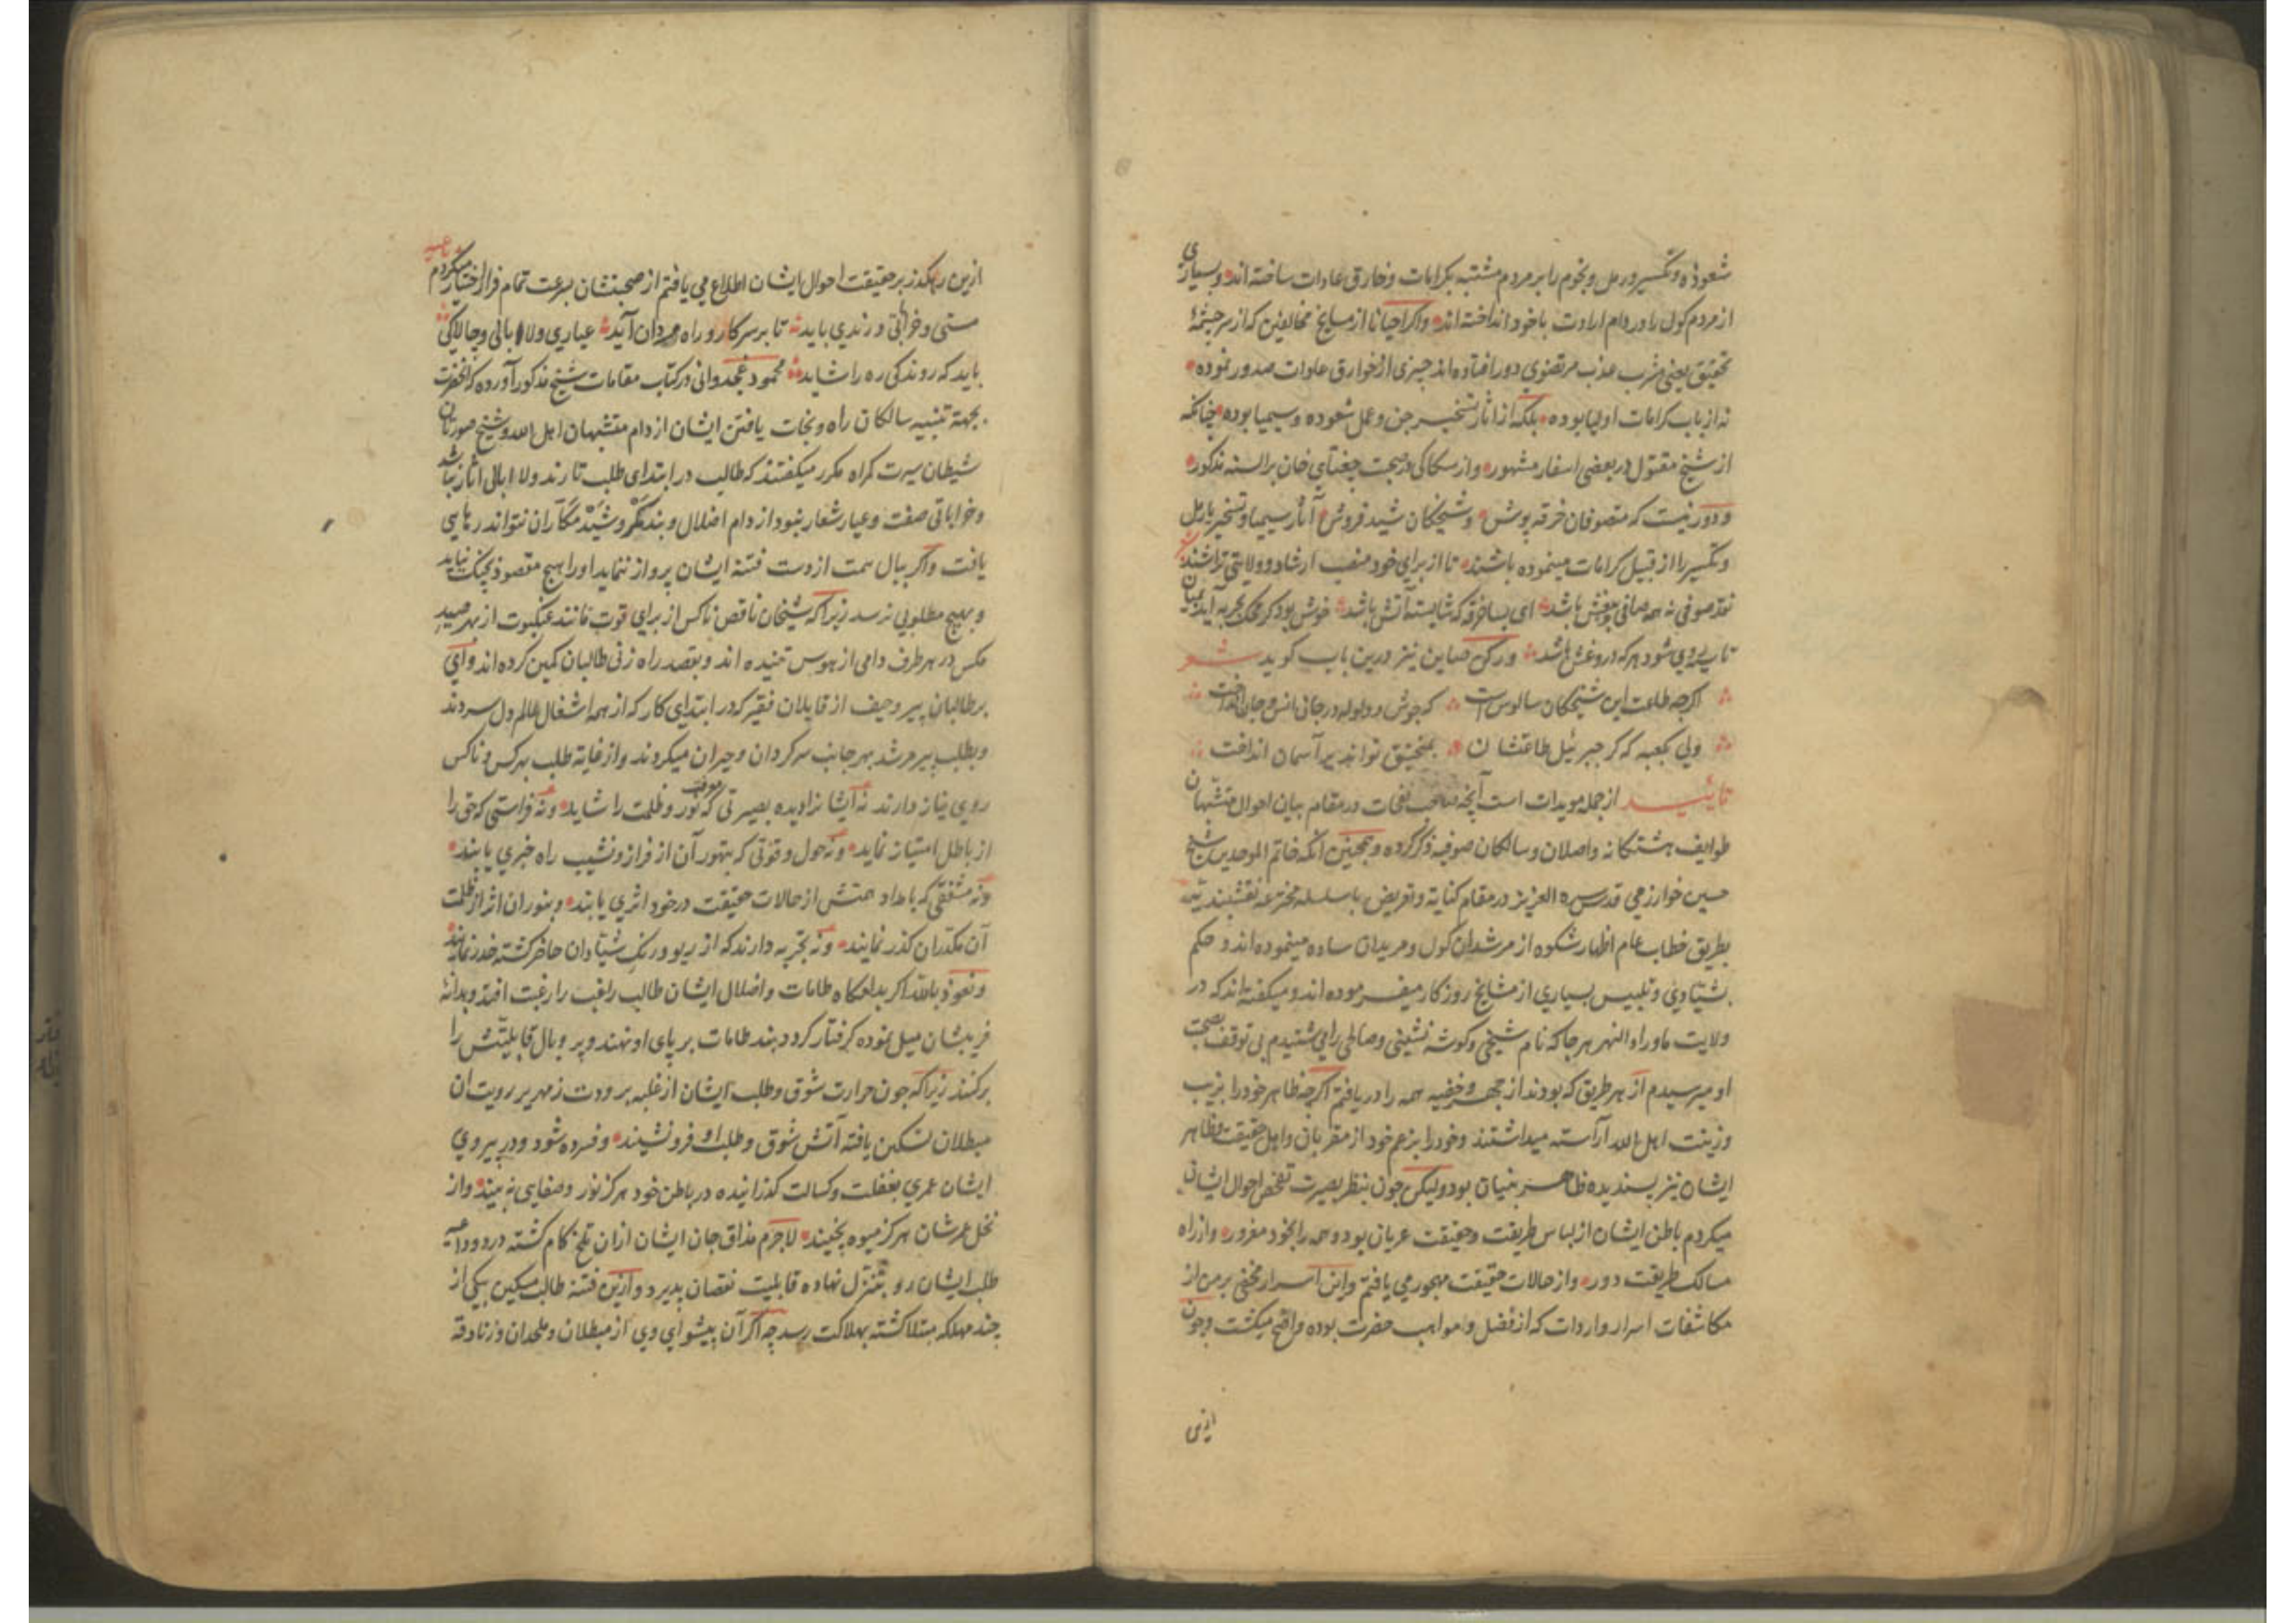 شعوذه و تکسیر و رمل و نجوم را بر مردم مشتبه بکرامات و خارق عادات ساخته اند و بسیاری
از مردم کول را در دام ارادت با خود انداخته اند واکر احیانا از مشایخ مخالفین که از سرچشمهٔ
تحقیق یعنی مشرب عذب مرتضوی دور افتاده اند چیزی از خوارق عادات صدور نموده
نه از باب کرامات اولیا بوده بلکه از اثار تسخیر جن و عمل شعوده و سیمیا بوده چنانکه
از شیخ مقتول در بعضی اسفار مشهور و از سکاکی در صحبت جغتای خان بر السنه مذکور
و دور نیست که متصوفان خرقه پوش و شیخکان شید فروش آثار سیمیا و تسخیر یا رمل
و تکسیر را از قبیل کرامات مینموده باشند تا از برای خود منصب ارشاد و ولایتی تراشند شعر
نقد صوفی نه همه صافی بیغش باشد ای بسا خرقه که شایسته آتش باشد خوش بود کر محک تجربه آید بمیان
تا سیه روی شود هر که دروغش باشد و رکن صاین نیز درین باب کوید شعر
اکرچه طلعت این شیخکان سالوس است که جوش و ولوله در جان انس و جان انداخت
ولی بکعبه که کر جبرئیل طاعتشان بمنجنیق تواند بر آسمان انداخت
تائید از جمله مویدات است آنچه صاحب نفحات در مقام بیان احوال متشبهان
طوایف هشتکانه واصلان و سالکان صوفیه ذکر کرده و همچنین آنکه خاتم الموحدین شیخ
حسین خوارزمی قدس سره العزیز در مقام کنایة و تعریض با سلسله مخترعه نقشبندیه
بطریق خطاب عام اظهار شکوه از مرشدان کول و مریدان ساده مینموده اند و حکم
بشیّادی و تلبیس بسیاری از مشایخ روزکار میفرموده اند و میکفته اند که در
ولایت ماوراء النهر هر جا که نام شیخی و کوشه نشینی و صالحی را می شنیدم بی توقف بصحبت
او میرسیدم از هر طریق که بودند از جهر و خفیه همه را دریافتم اکرچه ظاهر خود را بزیب
وزینت اهل الله آراسته میداشتند و خود را بزعم خود از مقربان و اهل حقیقت و ظاهر
ایشان نیز پسندیده ظاهر بنیان بود ولیکن چون بنظر بصیرت تفحص احوال ایشان
میکردم باطن ایشان از لباس طریقت و حقیقت عریان بود و همه را بخود مغرور و از راه
مسالک طریقت دور و از حالات حقیقت مهجور می یافتم و این اسرار مخفی بر من از
مکاشفات اسرار واردات که از فضل و مواهب حضرت بوده واقع میکشت و چون
ازین
ازین رهکذر بر حقیقت احوال ایشان اطلاع می یافتم از صحبتشان بسرعت تمام فرار اختیار میکردم
مستی و خراباتی و رندی باید تا بر سر کار و راه مردان آید عیاری و لاابالی و چالاکی
باید که روندکی ره را شاید محمود غجدوانی در کتاب مقامات شیخ مذکور آورده که آنحضرت
بجهة تنبیه سالکان راه و نجات یافتن ایشان از دام متشبهان اهل الله و شیخ صورتان
شیطان سیرت کمراه مکرر میکفتند که طالب در ابتدای طلب تا رند و لاابالی اثار نباشد
و خراباتی صفت و عیار شعار نبود از دام اضلال و بند مکر و شید مکّاران نتواند رهایی
یافت و اکر ببال همت از دست فتنهٔ ایشان پرواز ننماید او را هیچ مقصود بچنک نیاید
و بهیچ مطلوبی نرسد زیرا که شیخان ناقص ناکس از برای قوت مانند عنکبوت از بهر صید
مکس در هر طرف دامی از هوس تنیده اند و بقصد راه زنی طالبان کمین کرده اند و ای
بر طالبان پیر و حیف از قایلان فقیر که در ابتدای کار که از همه اشغال عالم دل سردند
و بطلب پیر مرشد بهر جانب سرکردان و حیران میکردند و از غایة طلب بهر کس و ناکس
روی نیاز دارند نه ایشانرا دیده بصیرتی که نور و ظلمت را شاید ونه فراستی که حق را
از باطل امتیاز نماید و نه حول و قوتی که بتهور آن از فراز و نشیب راه خبری یابند
ونه مشفقی که بامداد همتش از حالات حقیقت در خود اثری یابند و بنور ان اثر از ظلمت
آن مکدران کذر نمایند و نه تجربه دارند که از ریو و رنک شیّادان حاضر کشته حذر نمایند
و نعوذ بالله اکر بدامکاه طامات و اضلال ایشان طالب راغب را رغبت افتد و بدانهٔ
فریبشان میل نموده کرفتار کردد بند طامات بر پای او نهند و پر و بال قابلیتش را
برکنند زیرا که چون حرارت شوق و طلب ایشان از غلبه برودت زمهریر رویت ان
مبطلان تسکین یافته آتش شوق و طلب او فرو نشیند و فسرده شود و در پیروی
ایشان عمری بغفلت و کسالت کذرانیده در باطن خود هرکز نور و صفایی نه بیند و از
نخل عمرشان هرکز میوه نچیند لاجرم مذاق جان ایشان ازان تلخ کام کشته درد و داعیه
طلب ایشان رو بتنزل نهاده قابلیت نقصان پذیرد و ازین فتنه طالب مسکین بیکی از
چند مهلکه مبتلا کشته بهلاکت رسد چه اکر آن پیشوای وی از مبطلان و ملحدان و زنادقه